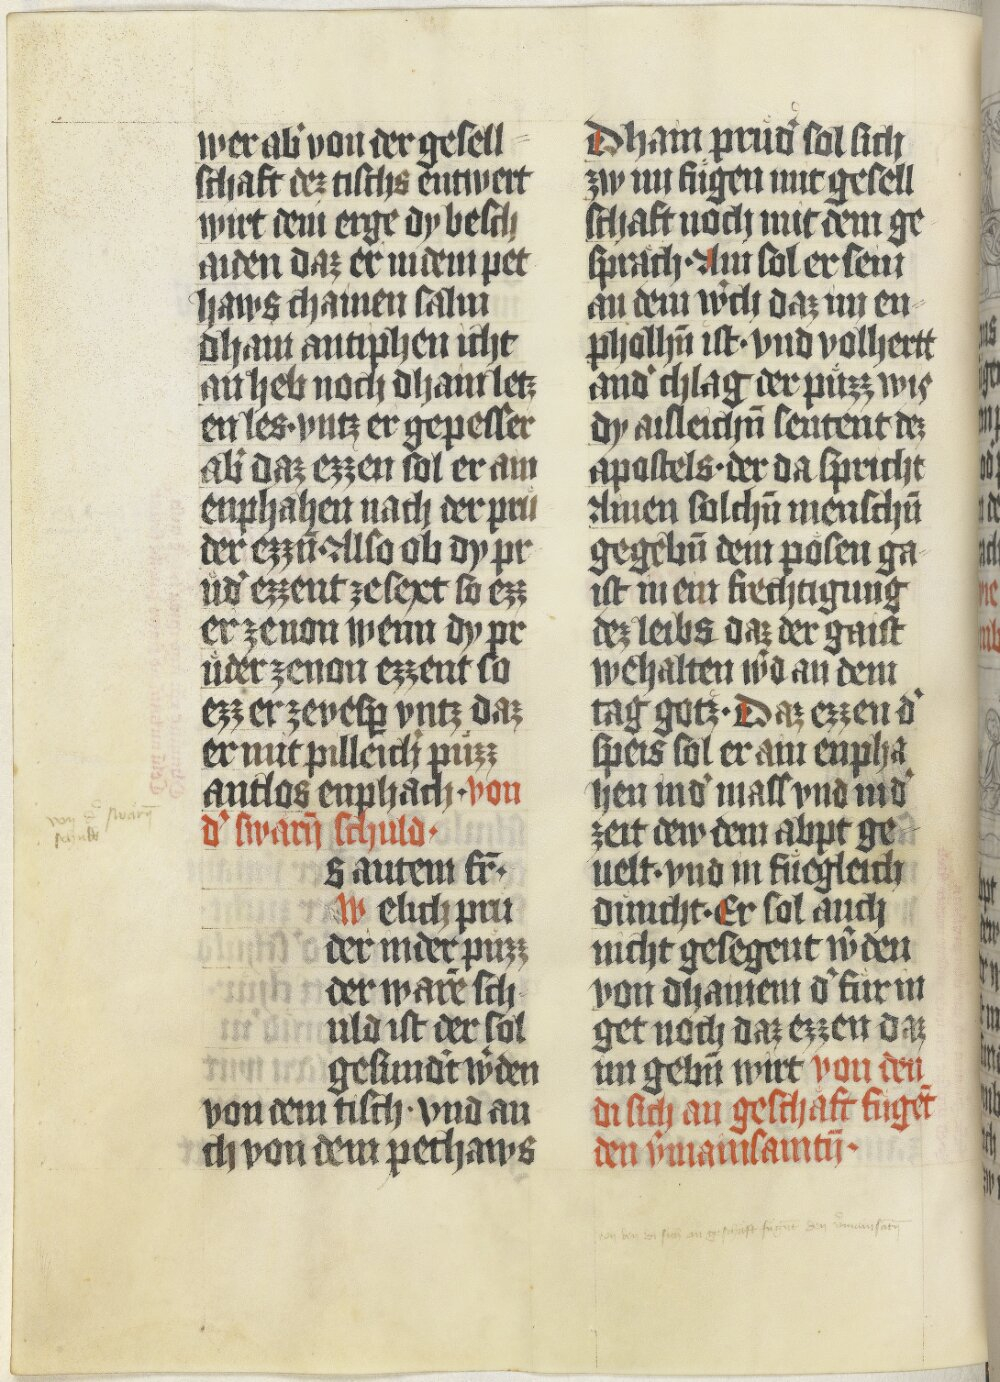 wer ab̾ von der gesell
schaft dez tischs entwert
wirt dem erge dy besch
aiden daz er in dem pet
haws chainen salm
dhain antiphen icht
an heb noch dhain letz
en les · vntz er gepesser
ab̾ daz ezzen sol er ain
enphahen nach der prů
der ezzn̄ · Also ob dy pr
ůd̾ ezzent ze sext so ezz
er ze non wenn dy pr
ůder ze non ezzent so
ezz er ze vesp̱ vntz daz
er mit pilleich̾ půzz
antlos enphach · von
d̾ swarn̄ schuld ·
s autem fr̄ ·
Welich pru
der in der půzz
der warē sch
uld ist der sol
gesundt̾ w̄den
von dem tisch · vnd au
ch von dem pethaws
Dhain průd̾ sol sich
zw im fůgen mit gesell
schaft noch mit dem ge
sprǎch · Ain sol er sein
an dem w̾ch daz im en
pholhn̄ ist · vnd volhertt
and̾ chlag der půzz wis
dy aisleichn̄ sentent dez
apostels · der da spricht
Ainen solchn̄ menschn̄
gegebn̄ dem pǒsen ga
ist in ein frechtigung
dez leibs daz der gaist
wehalten w̾d an dem
tag gotz · Daz ezzen d̾
speis sol er ain enpha
hen ind̾ mass vnd ind̾
zeit dew dem abpt ge
uelt · vnd in fůegleich
duncht · Er sol auch
nicht gesegent w̄den
von dhainem d̾ für in
get noch daz ezzen daz
im gebn̄ wirt von den
di sich an geschäft fuget̄
den v̾mainsamtn̄ ·
von d̾ swarn̄
schuld
von den di sich an geschäft fugent den v̾mainsamtn̄